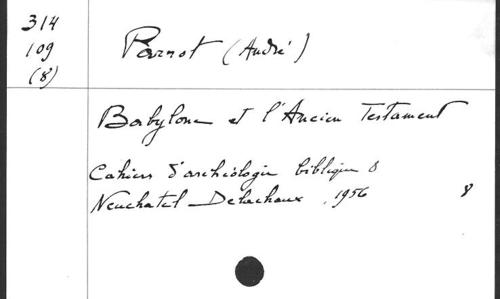 314
109
(8)
Parrot (André)
Babylone et l'Ancien Testament
Cahiers d'archéologie biblique 8
Neuchatel Delachaux, 1956 8